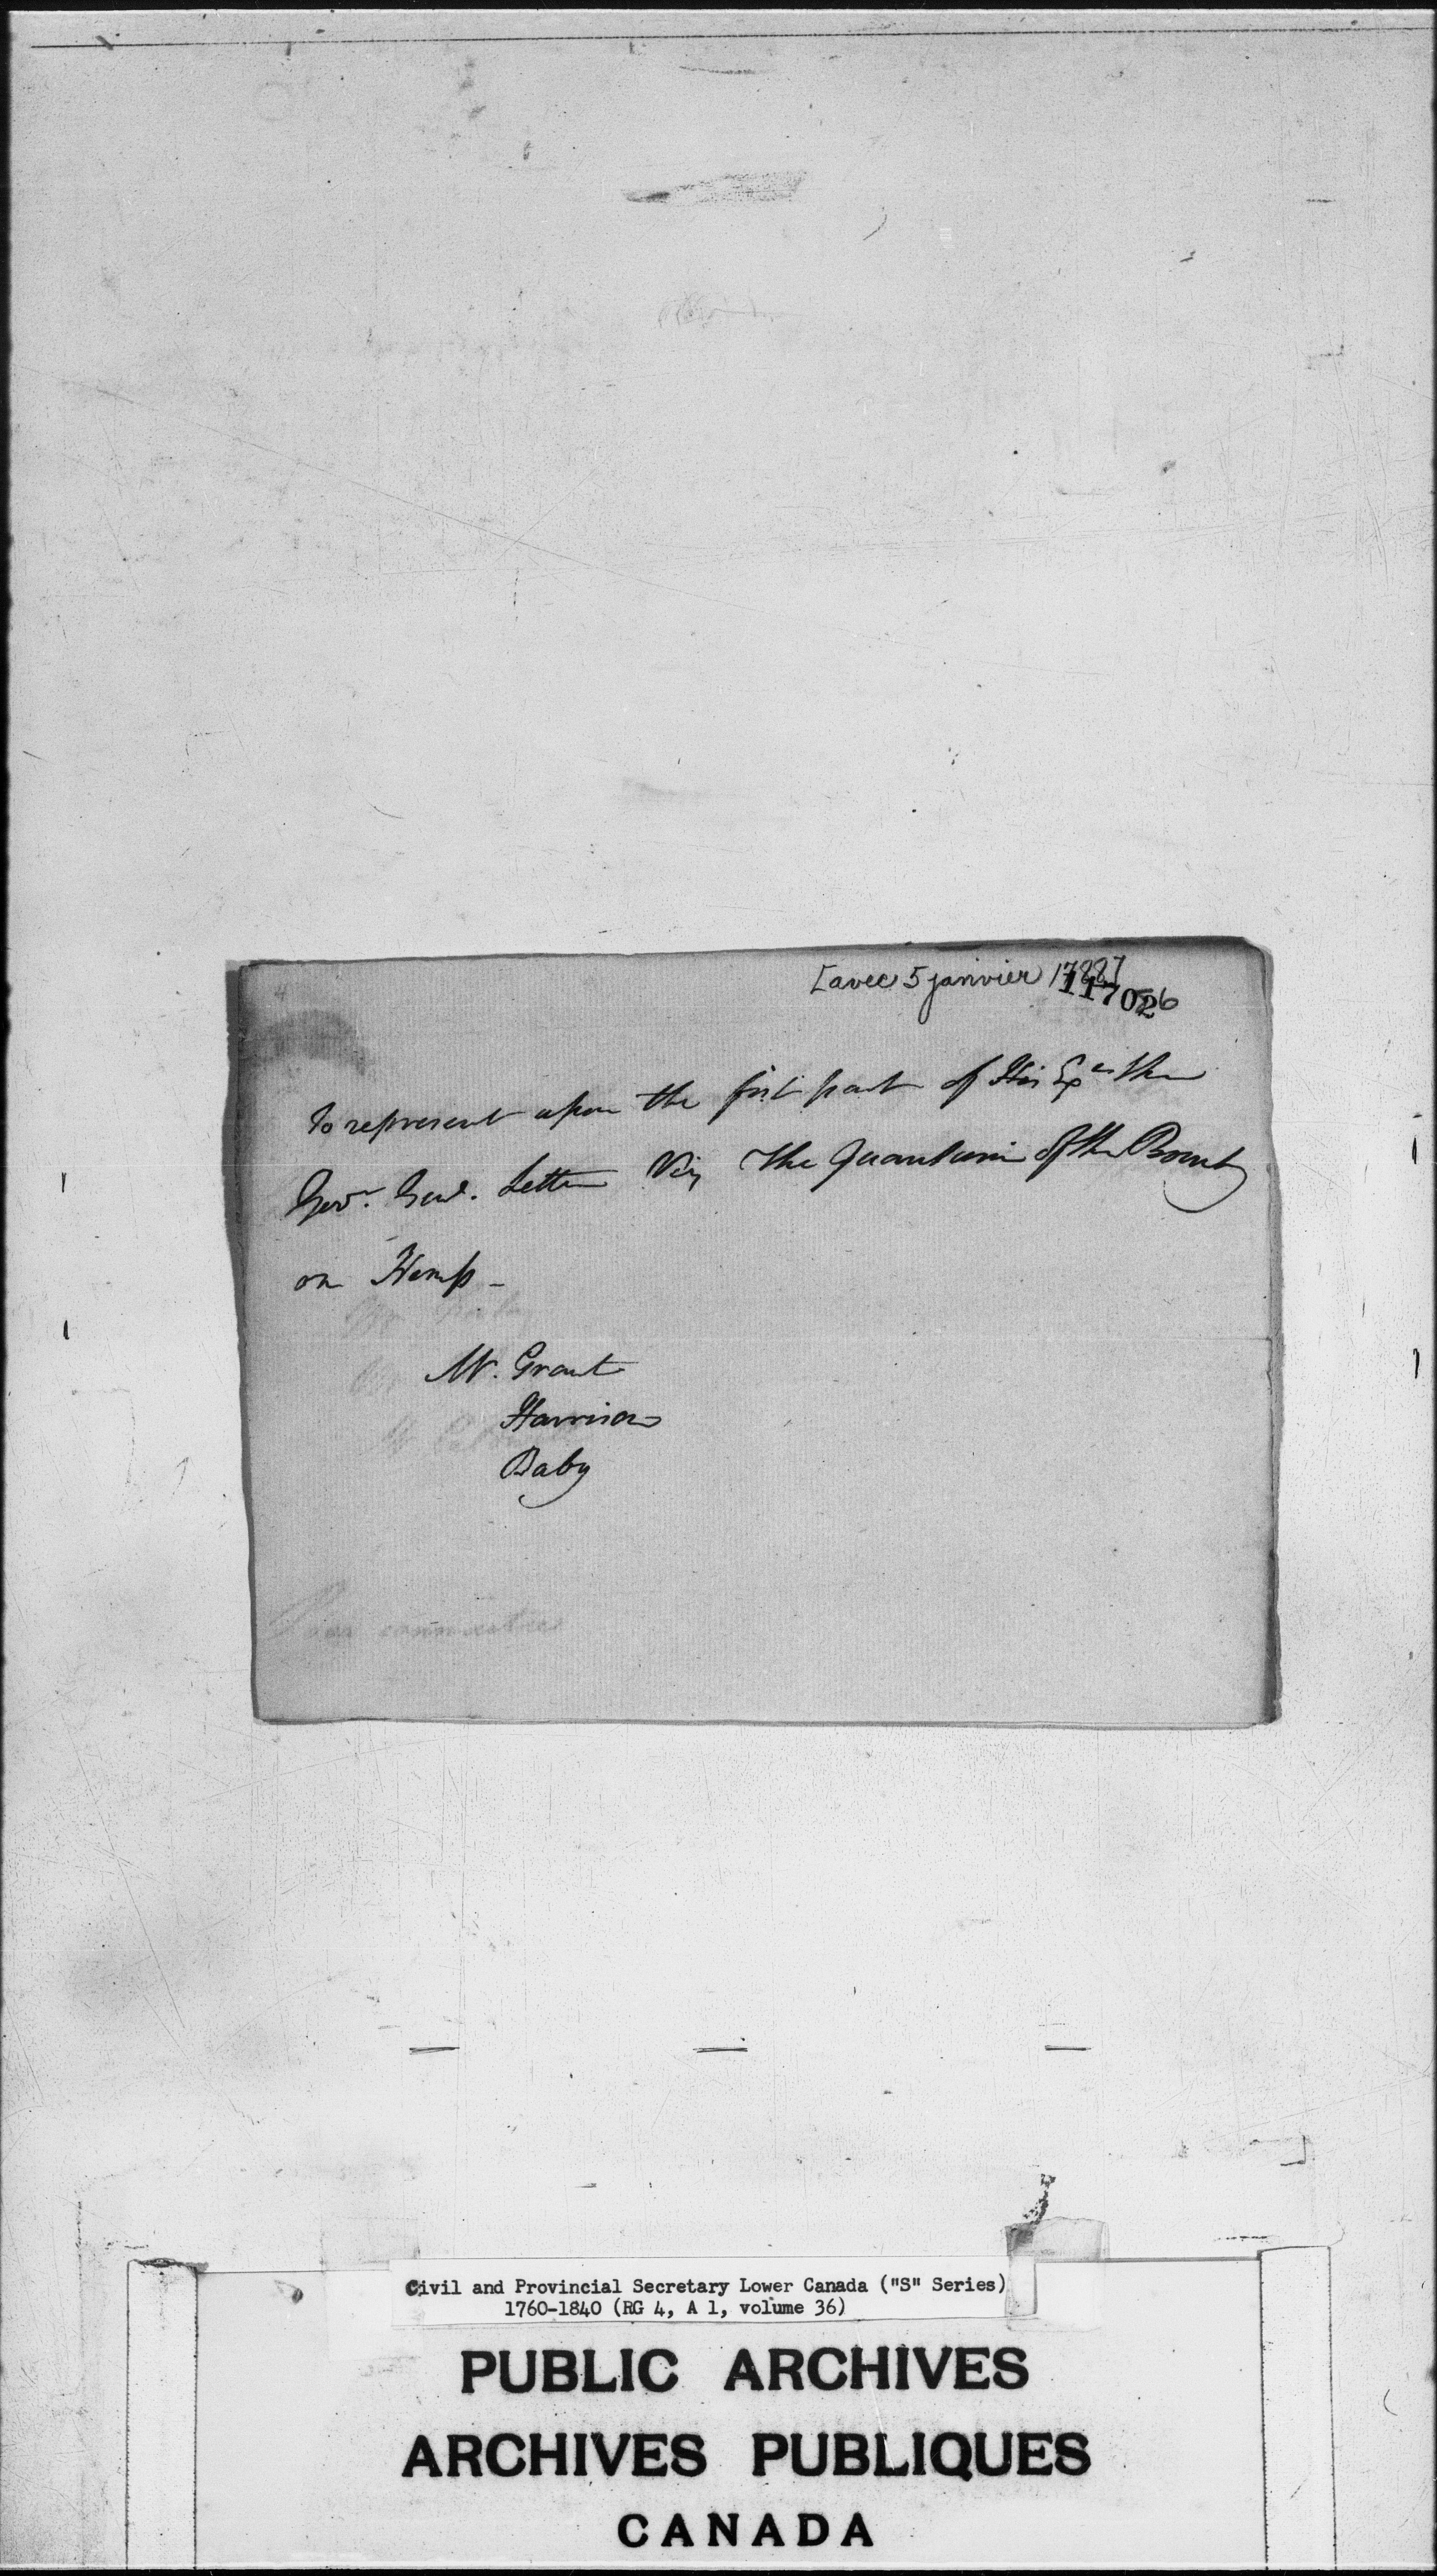 [avec 5 janvier 1788]
11702
To represent upon the first part of His Exc'y the
Gov.r Genl. Letter Viz The Quantum Of the Bounty
on Hemp -
Mr. Grant
Harrison
Baby
Civil and Provincial Secretary Lower Canada ("S" Series)
1760-1840 (RG 4, A 1, volume 36)
PUBLIC ARCHIVES
ARCHIVES PUBLIQUES
CANADA